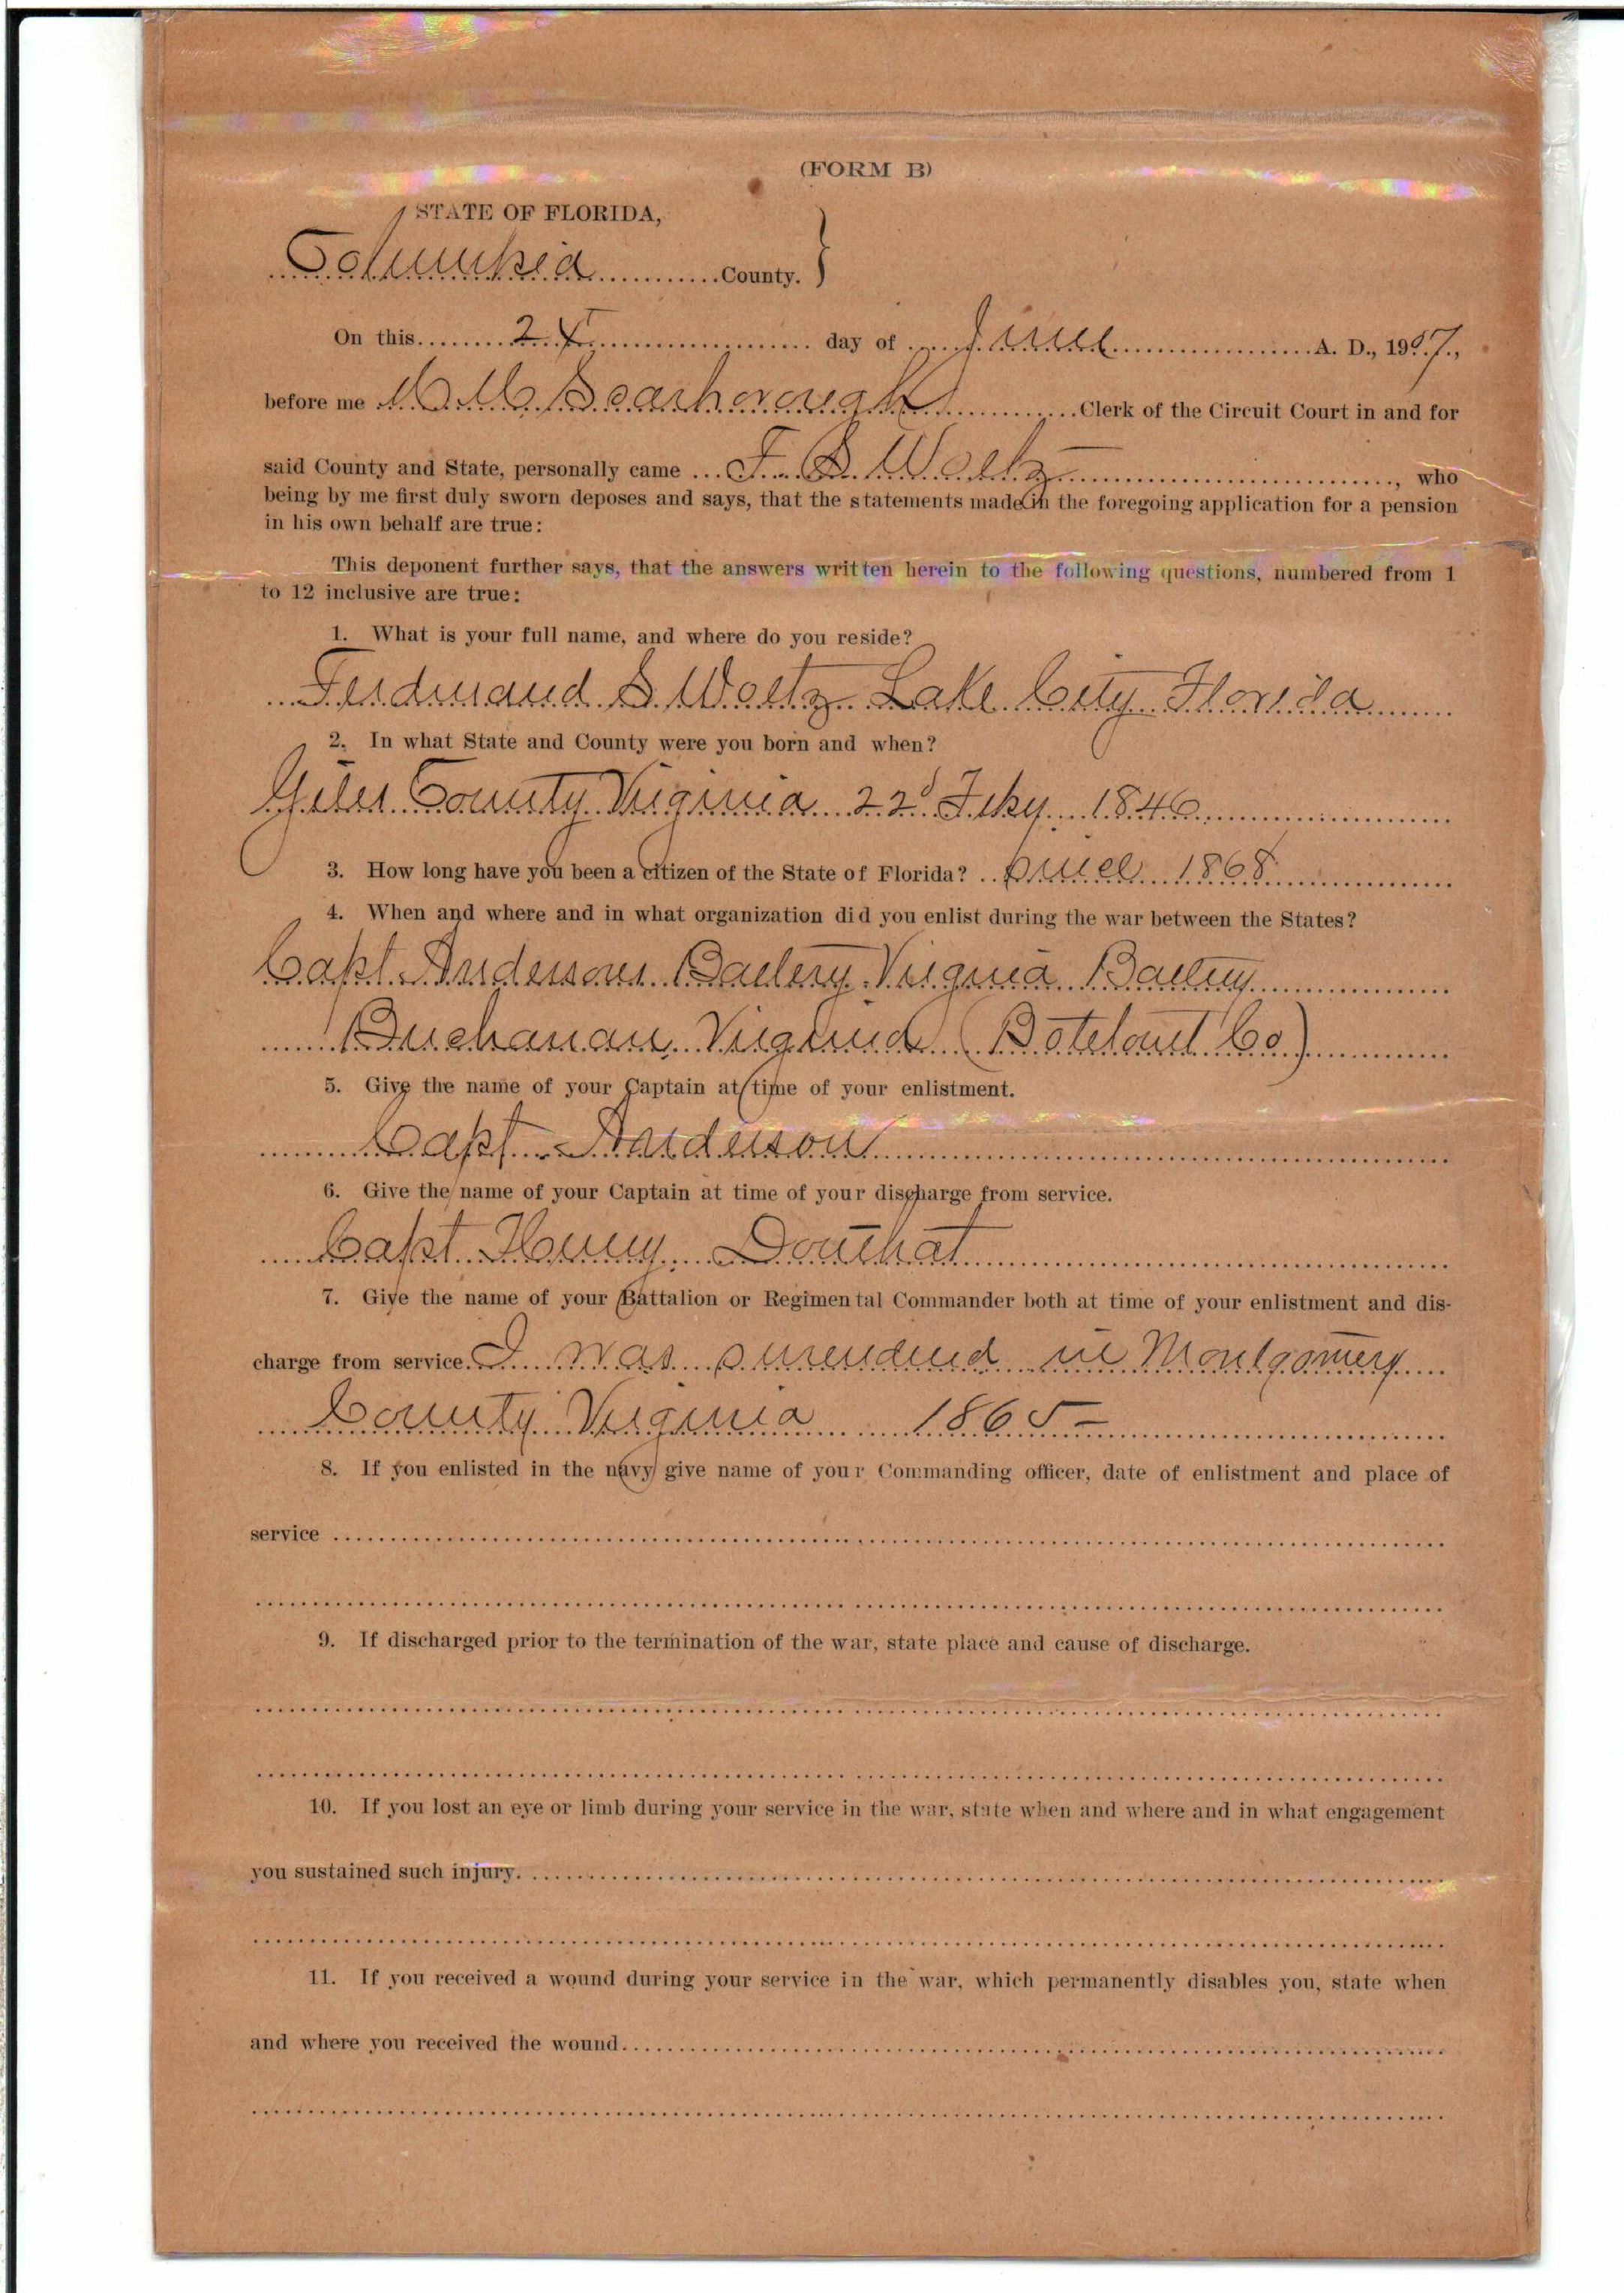 (FORM B)
STATE OF FLORIDA,
Columbia County.
On this 24 day of June A. D., 1907.,
before me M M Scarborough Clerk of the Circuit Court in and for
said County and State, personally came F. S. Woltz, who
being by me first duly sworn deposes and says, that the statements made in the foregoing application for a pension
in his own behalf are true:
This deponent further says, that the answers written herein to the following questions, numbered from 1
to 12 inclusive are true:
1. What is your full name, and where do you reside?
Ferdinand S. Woltz Lake City Florida
2. In what State and County were you born and when?
Giles County Virginia 22d Feby 1846
3. How long have you been a citizen of the State of Florida? since 1868
4. When and where and in what organization did you enlist during the war between the States?
Capt. Andersons Battery Virginia Battery
Buchanan, Virginia (Botetourt Co)
5. Give the name of your Captain at time of your enlistment.
Capt. Anderson
6. Give the name of your Captain at time of your discharge from service.
Capt. Henry Douthat
7. Give the name of your Battalion or Regimental Commander both at time of your enlistment and dis-
charge from service. I was surrendered in Montgomery
County Virginia 1865-
8. If you enlisted in the navy give name of your Commanding officer, date of enlistment and place of
service
9. If discharged prior to the termination of the war, state place and cause of discharge.
10. If you lost an eye or limb during your service in the war, state when and where and in what engagement
you sustained such injury.
11. If you received a wound during your service in the war, which permanently disables you, state when
and where you received the wound